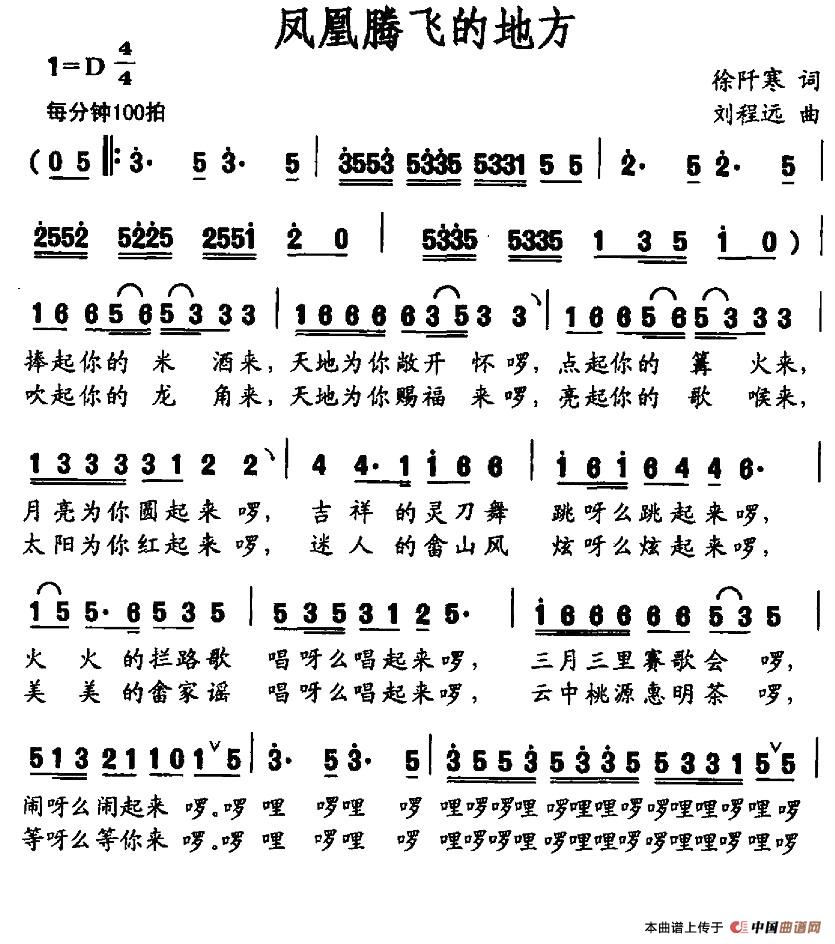 凤凰腾飞的地方
1=D 4/4
每分钟100拍
徐阡寒 词
刘程远 曲
( 0 5 ‖: 3· 5 3· 5 | 3553 5335 5331 5 5 | 2· 5 2· 5 |
2552 5225 2551 2 0 | 5335 5335 1 3 5 1 0 )
1 6 6 5 6 5 3 3 3 | 1 6 6 6 6 3 5 3 3 | 1 6 6 5 6 5 3 3 3 |
捧起你的 米 酒来，天地为你敞开 怀啰，点起你的 篝 火来，
吹起你的 龙 角来，天地为你赐福 来啰，亮起你的 歌 喉来，
1 3 3 3 3 1 2 2 | 4 4· 1 1 6 6 | 1 6 1 6 4 4 6· |
月亮为你圆起来 啰， 吉 祥 的灵刀舞 跳呀么跳起来啰，
太阳为你红起来 啰， 迷 人 的畲山风 炫呀么炫起来啰，
1 5 5· 6 5 3 5 | 5 3 5 3 1 2 5· | 1 6 6 6 6 6 5 3 5 |
火 火 的拦路歌 唱呀么唱起来啰， 三月三里赛歌会 啰，
美 美 的畲家谣 唱呀么唱起来啰， 云中桃源惠明茶 啰，
5 1 3 2 1 1 0 1 ∨ 5 | 3· 5 3· 5 | 3 5 5 3 5 3 3 5 5 3 3 1 5 ∨ 5
闹呀么闹起来 啰。啰 哩 啰哩 啰 哩啰啰哩 啰哩哩啰啰哩哩啰哩 啰
等呀么等你来 啰。啰 哩 啰哩 啰 哩啰啰哩 啰哩哩啰啰哩哩啰哩 啰
本曲谱上传于 中国曲谱网